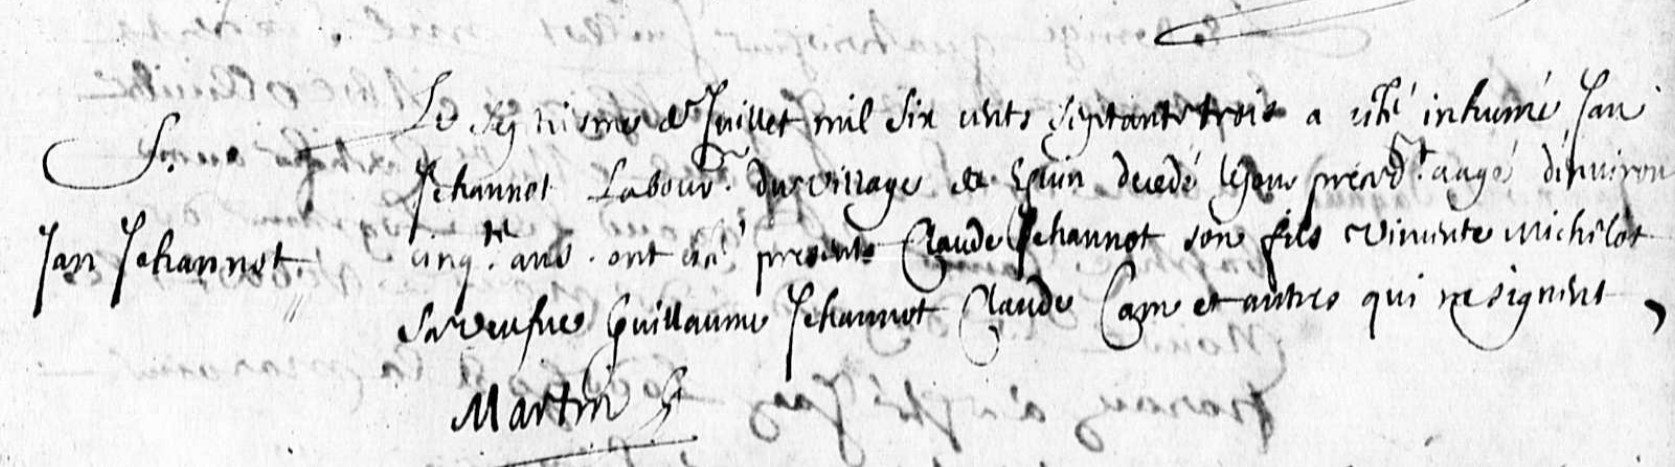 Le seziesme de Juillet mil six cents septante trois a esté inhumé Jan
Jehannot Labour. du village de decedé le jour preced.t aagé d'environ
Jan Jehannot
cinq.te ans. ont esté presents Claude Jehannot son fils Vincente Michelot
sa veufve Guillaume Jehannot Claude Cam et autres qui ne signent,
Martin